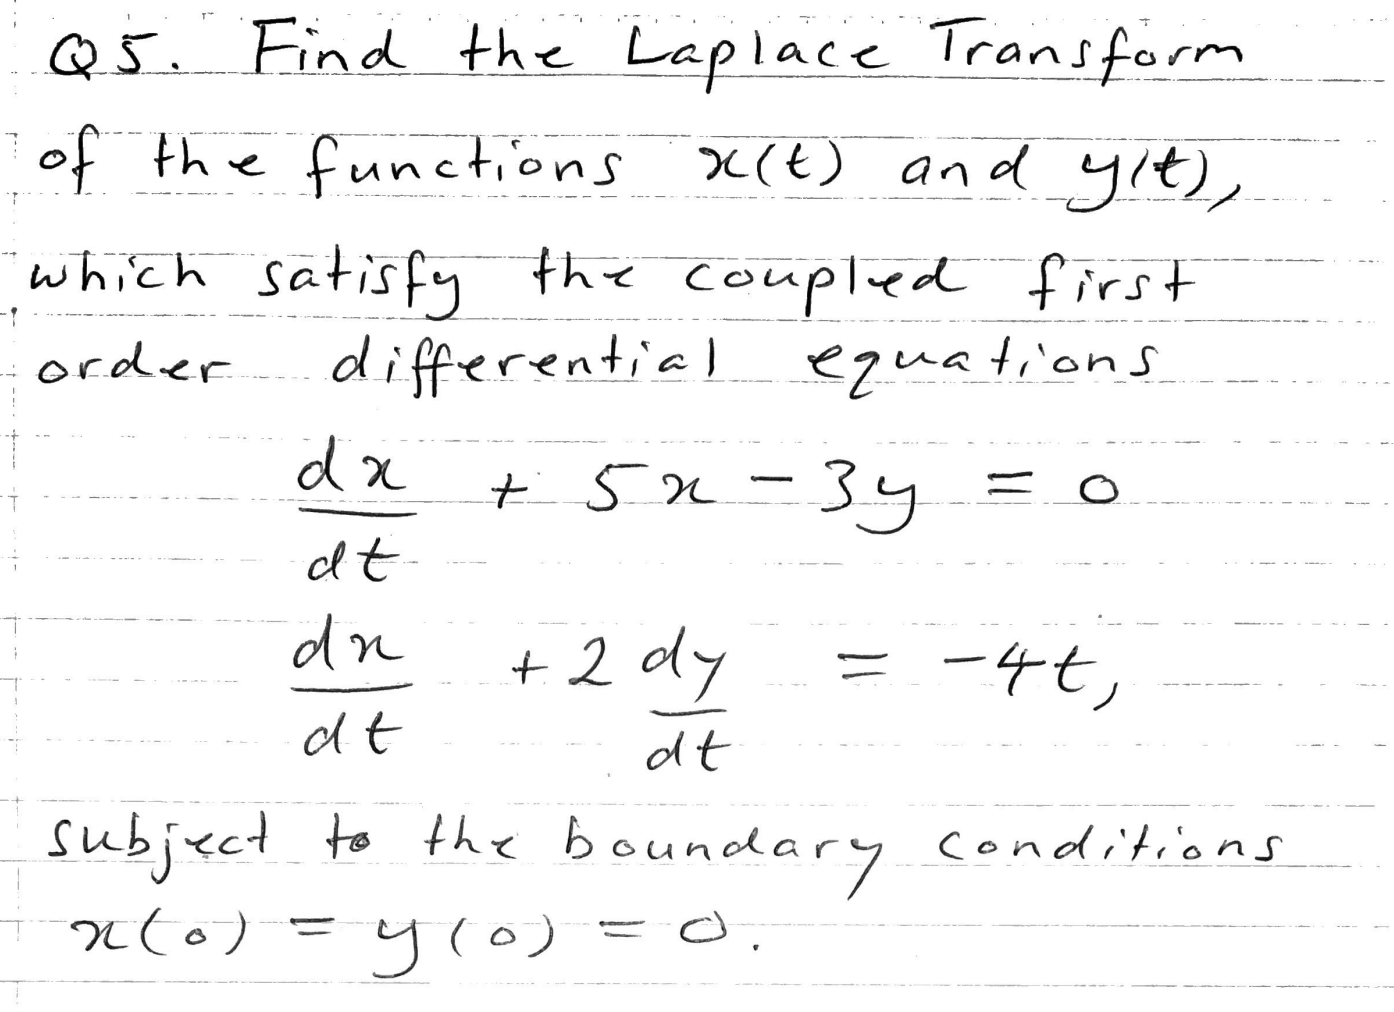 Q5. Find the Laplace Transform
of the functions x(t) and y(t),
which satisfy the coupled first
order differential equations
dx/dt + 5x - 3y = 0
dx/dt + 2 dy/dt = -4t,
subject to the boundary conditions
x(0) = y(0) = 0.